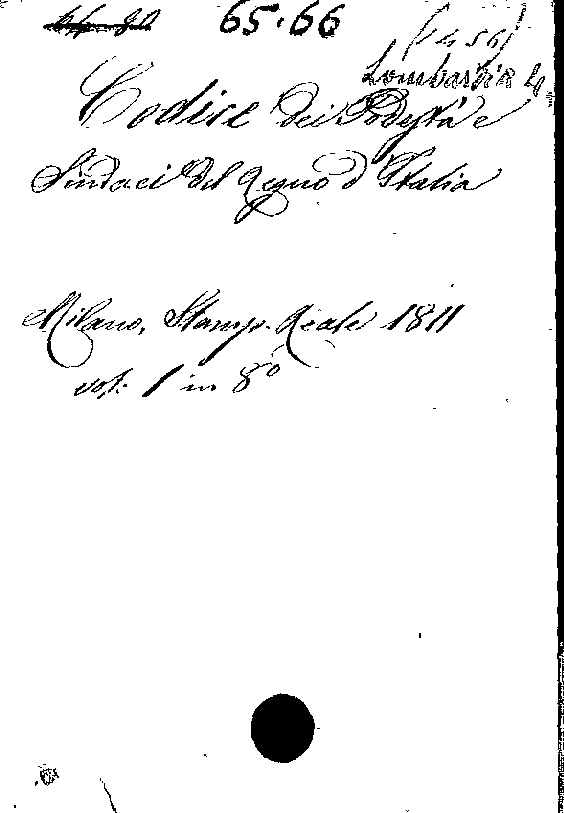 65.66
(1456)
Lombardia 4
Codice dei Podestà e
Sindaci del Regno d'Italia
Milano, Stamp. Reale 1811
vol. 1 in 8º